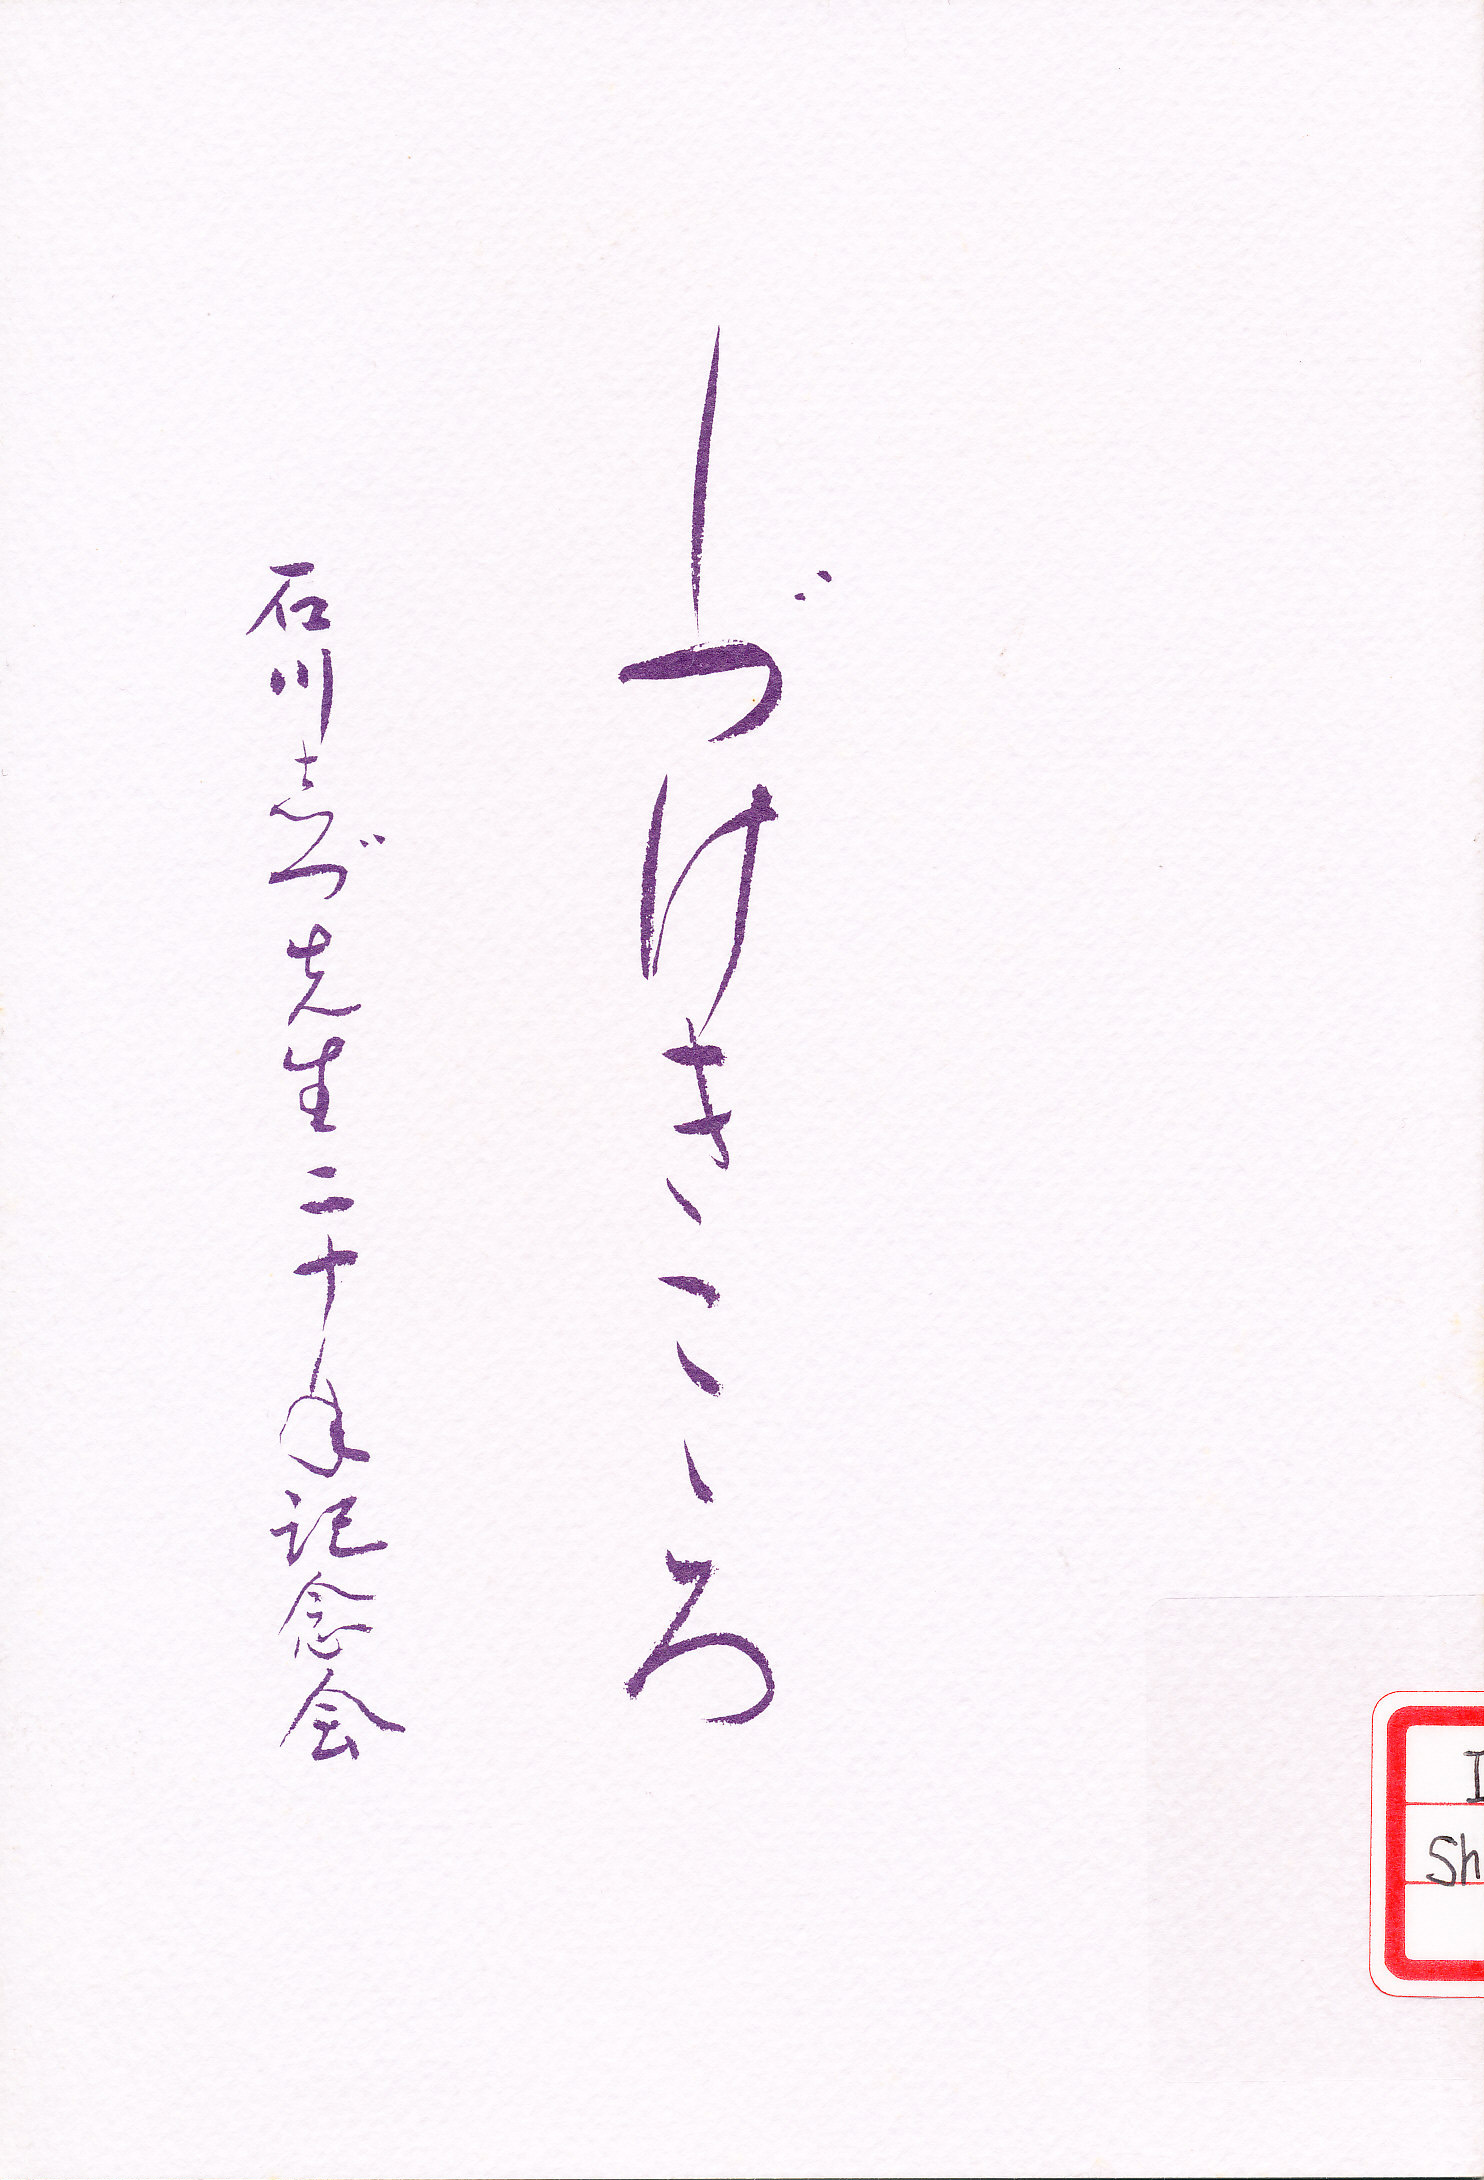 しづけきこゝろ
石川志づ先生二十年記念会
I
Sh